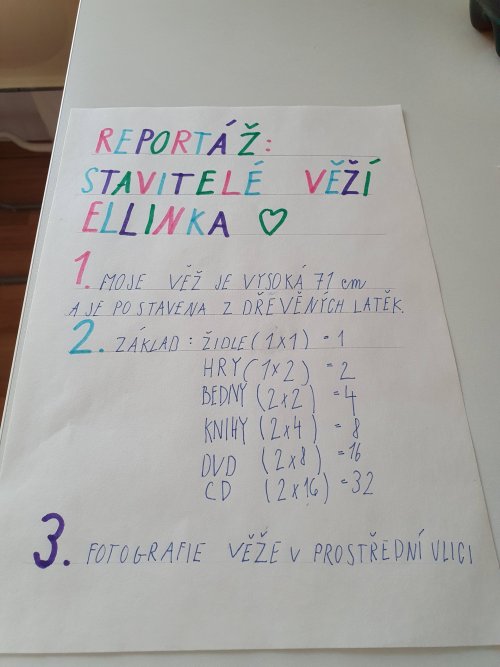 REPORTÁŽ:
STAVITELÉ VĚŽÍ
ELLINKA ♡
1. MOJE VĚŽ JE VYSOKÁ 71 cm
A JE POSTAVENA Z DŘEVĚNÝCH LATĚK.
2. ZÁKLAD: ŽIDLE (1x1) = 1
HRY (1x2) = 2
BEDNY (2x2) = 4
KNIHY (2x4) = 8
DVD (2x8) = 16
CD (2x16) = 32
3. FOTOGRAFIE VĚŽE V PROSTŘEDNÍ ULICI